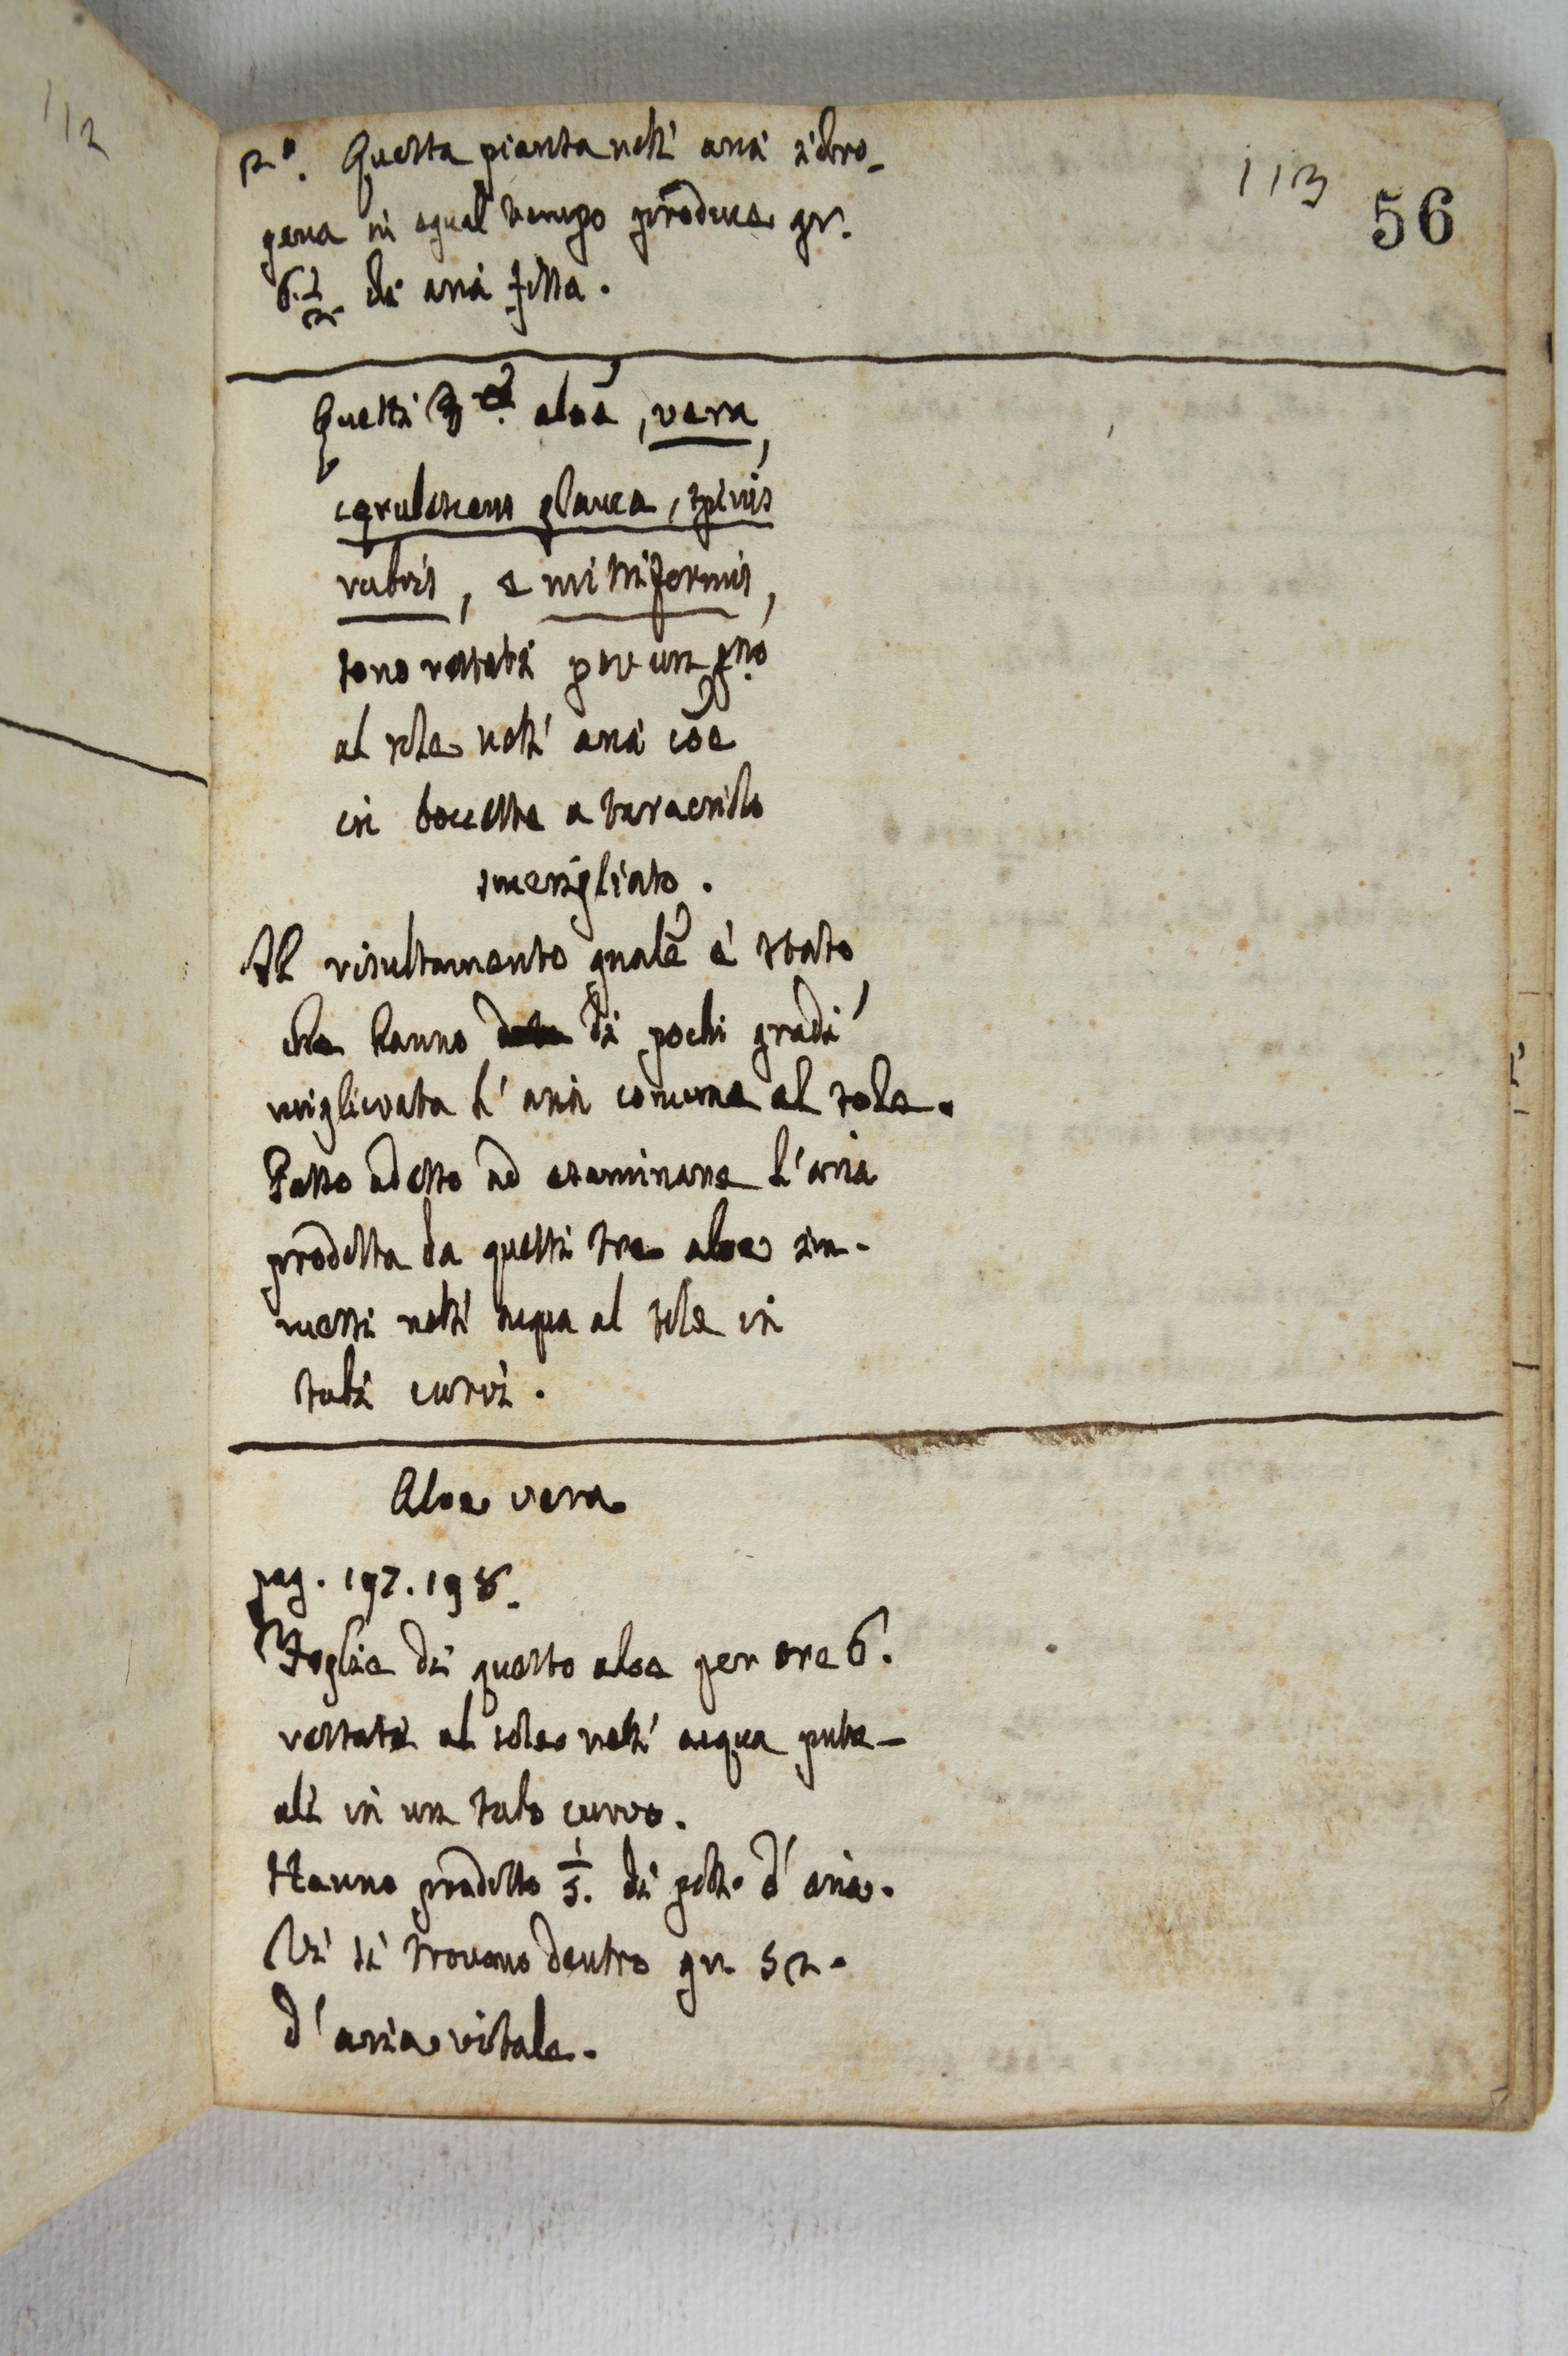 112
113
56
2°. Questa pianta nell' aria idro-
gena in egual tempo produce gr.
6. 1/2 di aria fissa.
Questi 3 aloe, vera,
cęrulescens glauca, spinis
rubris, e mitriformis,
sono restati per un gno
al sole nell' aria cõe
in boccette a turacciolo
smerigliato.
Il risultamento gnale è stato,
che hanno di pochi gradi
migliorata l' aria comune al sole.
Passo adesso ad esaminare l' aria
prodotta da questi tre aloe im-
messi nell' acqua al sole in
tubi curvi.
Aloe vera
pag. 197. 198.
Foglie di questo aloe per ore 6.
restate al sole nell' acqua pute-
ali in un tubo curvo.
Hanno prodotto 1/5. di poll. d' aria.
Vi si trovano dentro gr. 52.
d' aria vitale.